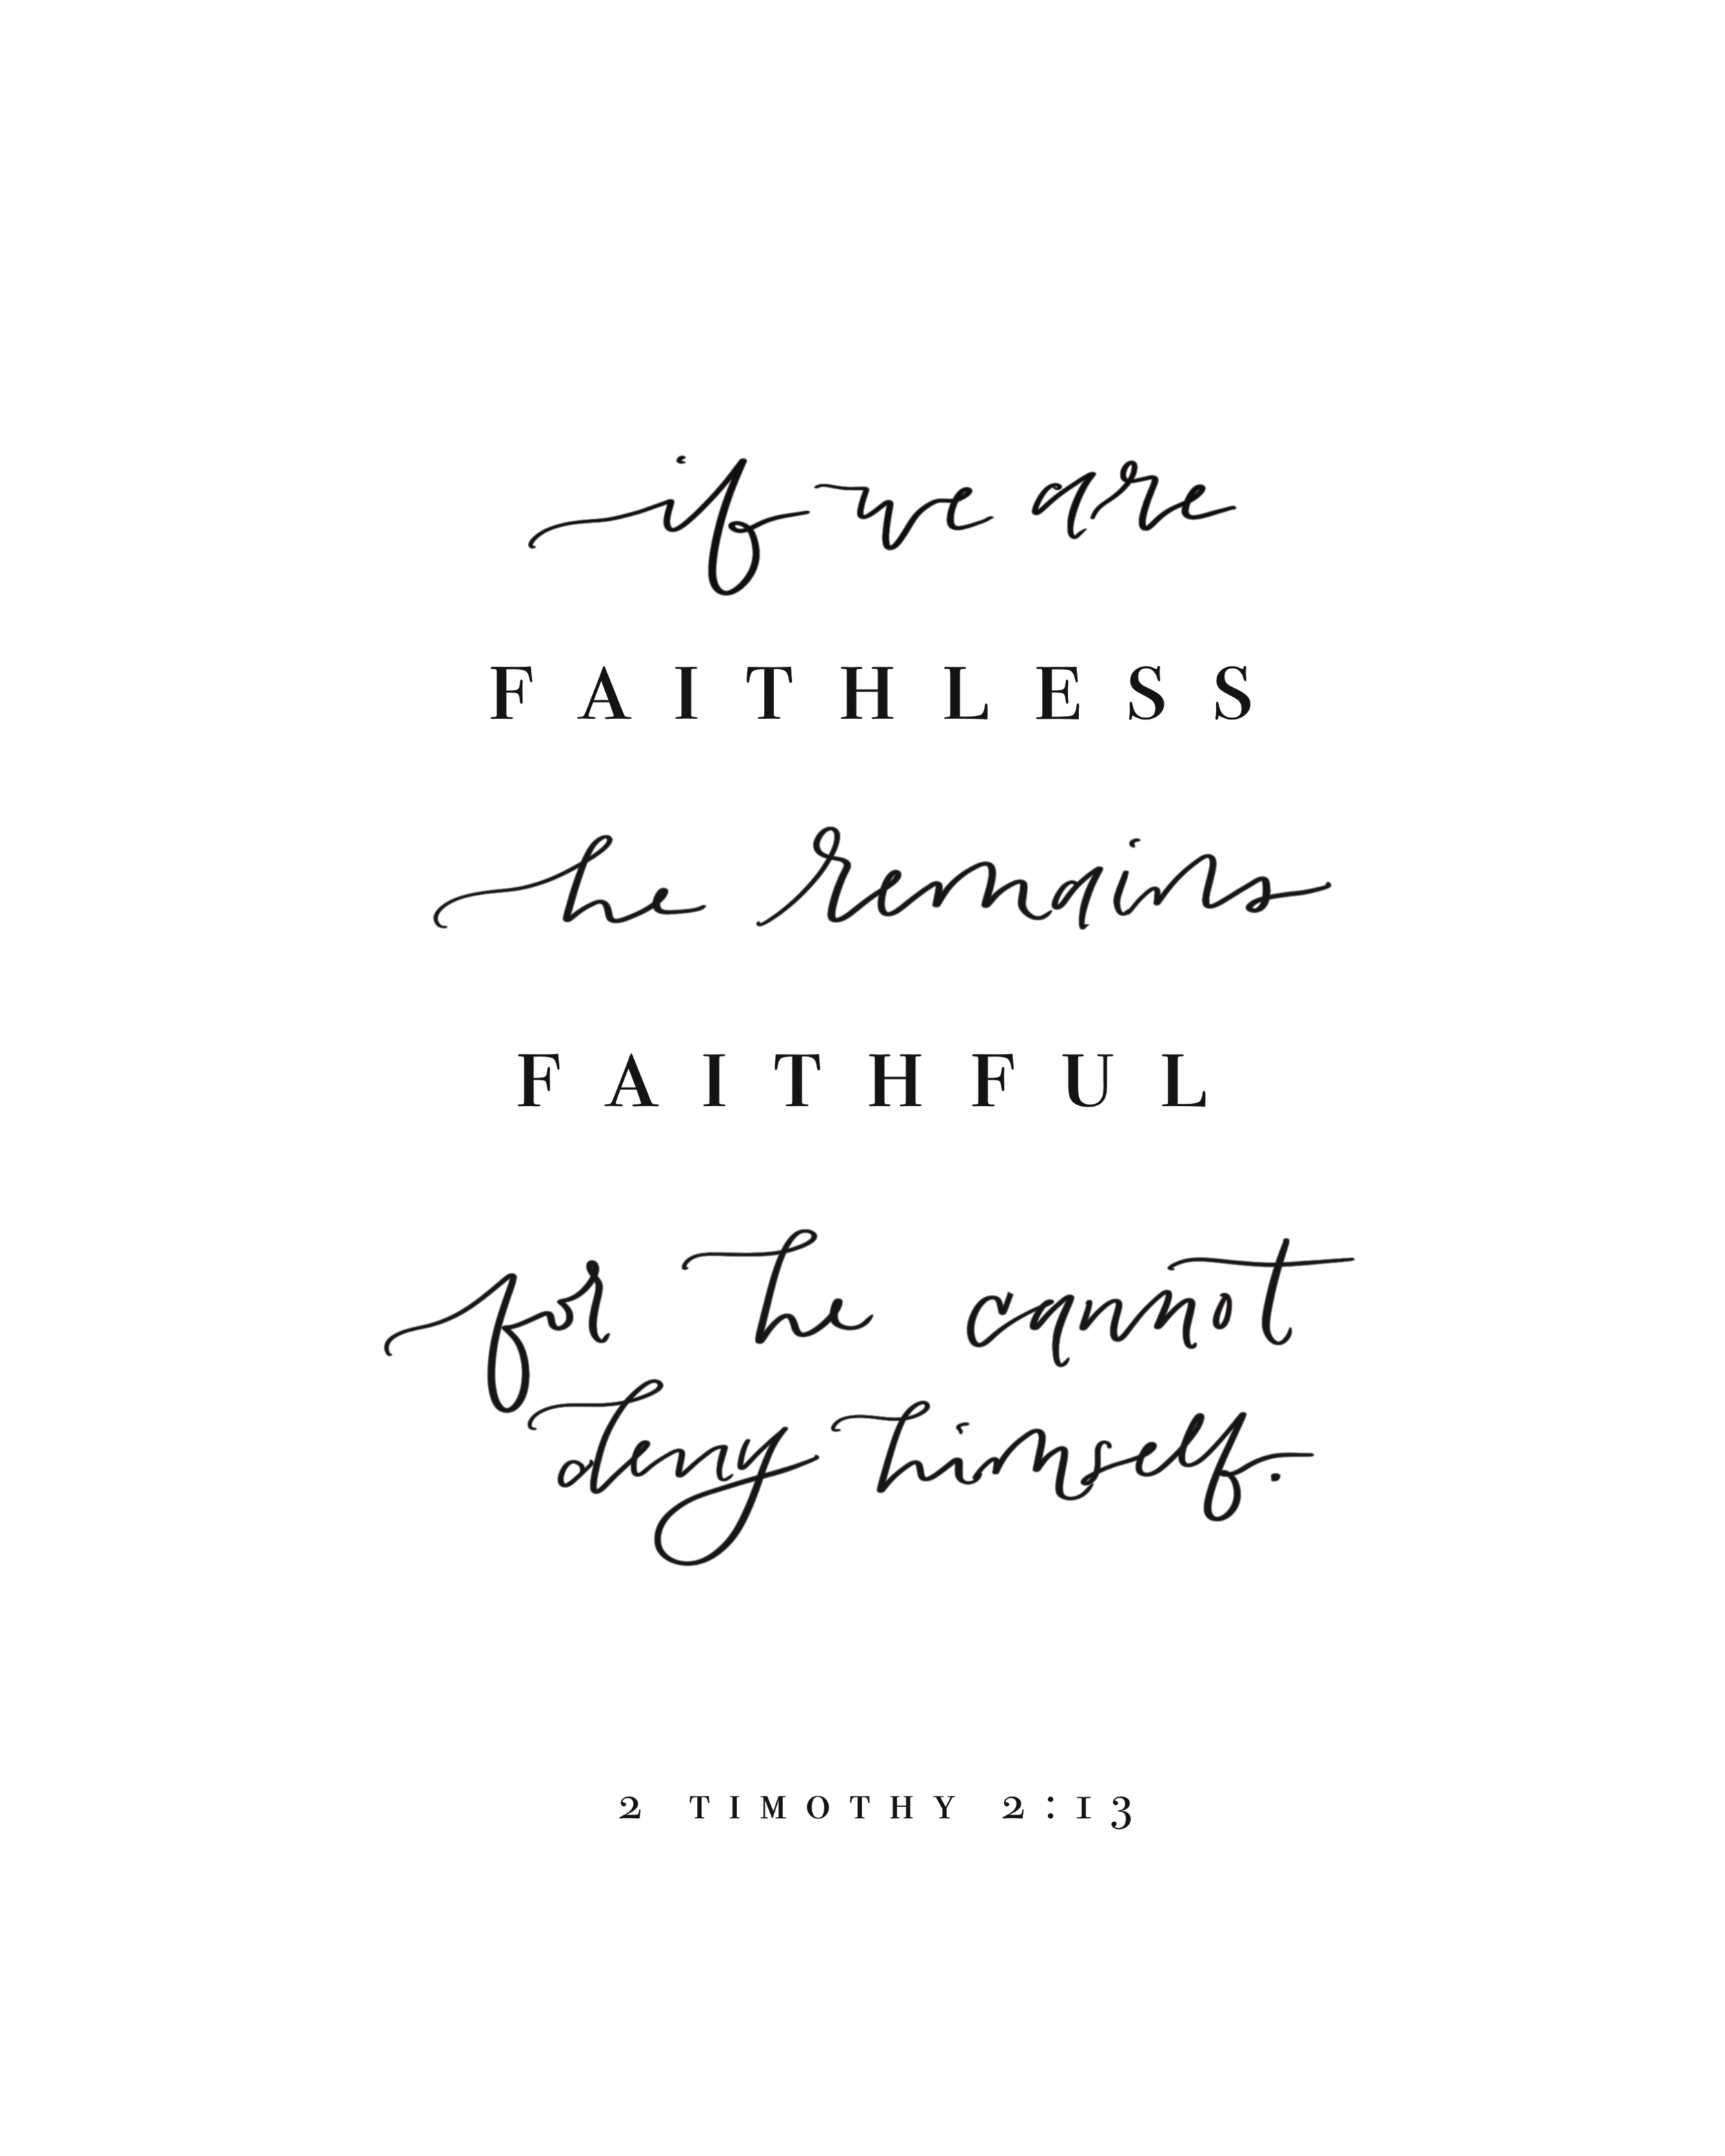 if we are
FAITHLESS
he remains
FAITHFUL
for he cannot
deny himself.
2 TIMOTHY 2:13